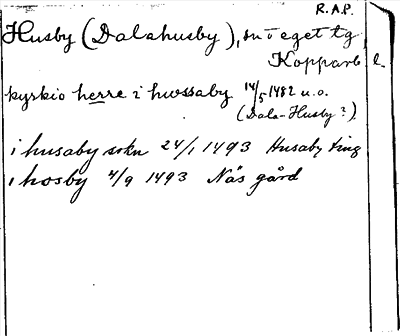 R.A.P.
Husby (Dalahusby), sn i eget tg
Kopparb l.
kyrkio herre i hwssaby 14/5 1482 u.o.
(Dala-Husby?)
i husaby sokn 24/1 1493 Husaby ting
i hosby 4/9 1493 Näs gård